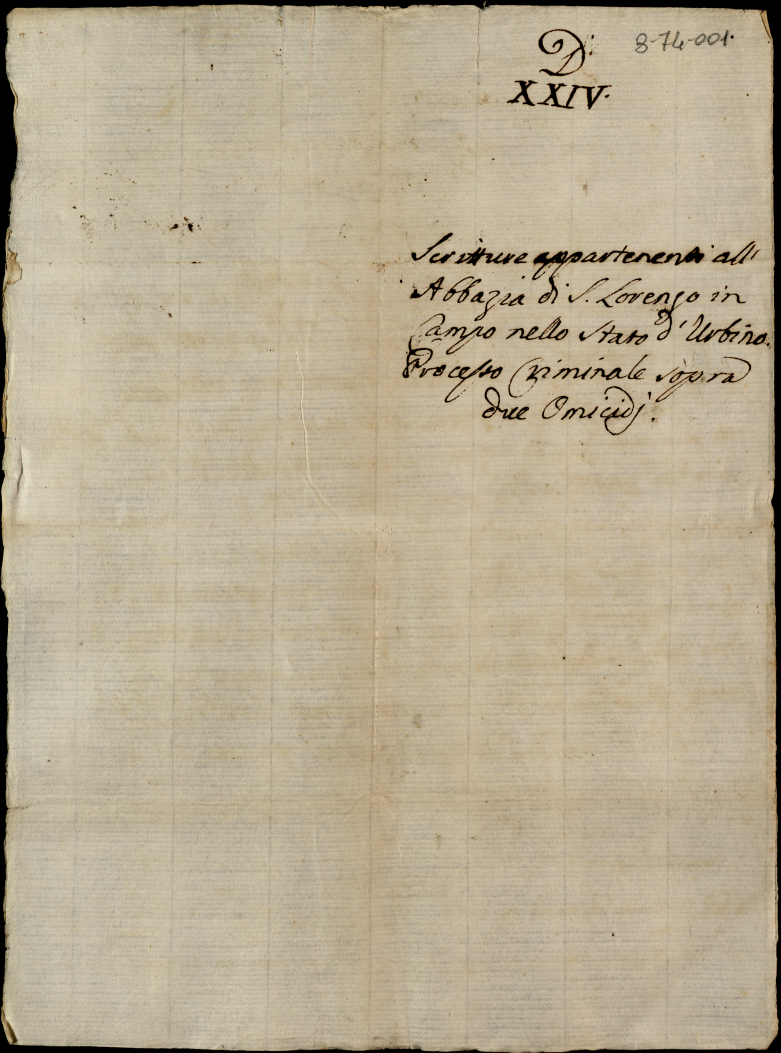 D.
8-74-001.
XXIV.
Scritture appartenenti all'
Abbazia di S. Lorenzo in
Campo nello Stato d'Urbino.
Processo Criminale sopra
due Omicidj.